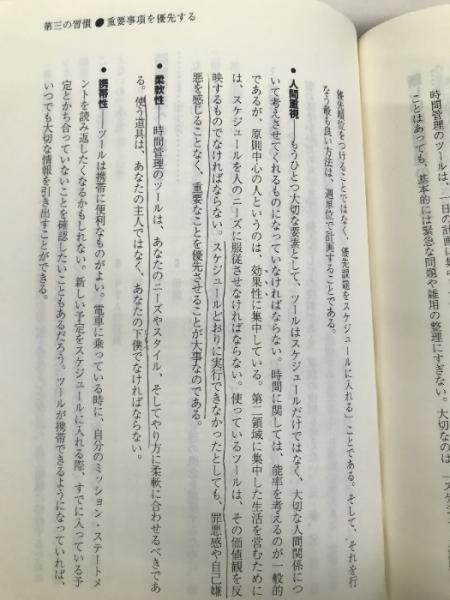 第三の習慣●重要事項を優先する
時間管理のツールは、一日の計画に集中
ことはあっても、基本的には緊急な問題や雑用の整理にすぎない。大切なのは「スケジ
優先順位をつけることではなく、優先課題をスケジュールに入れる」ことである。そして、それを行
なう最も良い方法は、週単位で計画することである。
●人間重視――もうひとつ大切な要素として、ツールはスケジュールだけではなく、大切な人間関係につ
いて考えさせてくれるものになっていなければならない。時間に関しては、能率を考えるのが一般的
であるが、原則中心の人というのは、効果性に集中している。第二領域に集中した生活を営むために
は、スケジュールを人のニーズに服従させなければならない。使っているツールは、その価値観を反
映するものでなければならない。スケジュールどおりに実行できなかったとしても、罪悪感や自己嫌
悪を感じることなく、重要なことを優先させることが大事なのである。
●柔軟性――時間管理のツールは、あなたのニーズやスタイル、そしてやり方に柔軟に合わせるべきであ
る。使う道具は、あなたの主人ではなく、あなたの下僕でなければならない。
●携帯性――ツールは携帯に便利なものがよい。電車に乗っている時に、自分のミッション・ステートメ
ントを読み返したくなるかもしれない。新しい予定をスケジュールに入れる際、すでに入っている予
定とかち合っていないことを確認したいこともあるだろう。ツールが携帯できるようになっていれば、
いつでも大切な情報を引き出すことができる。